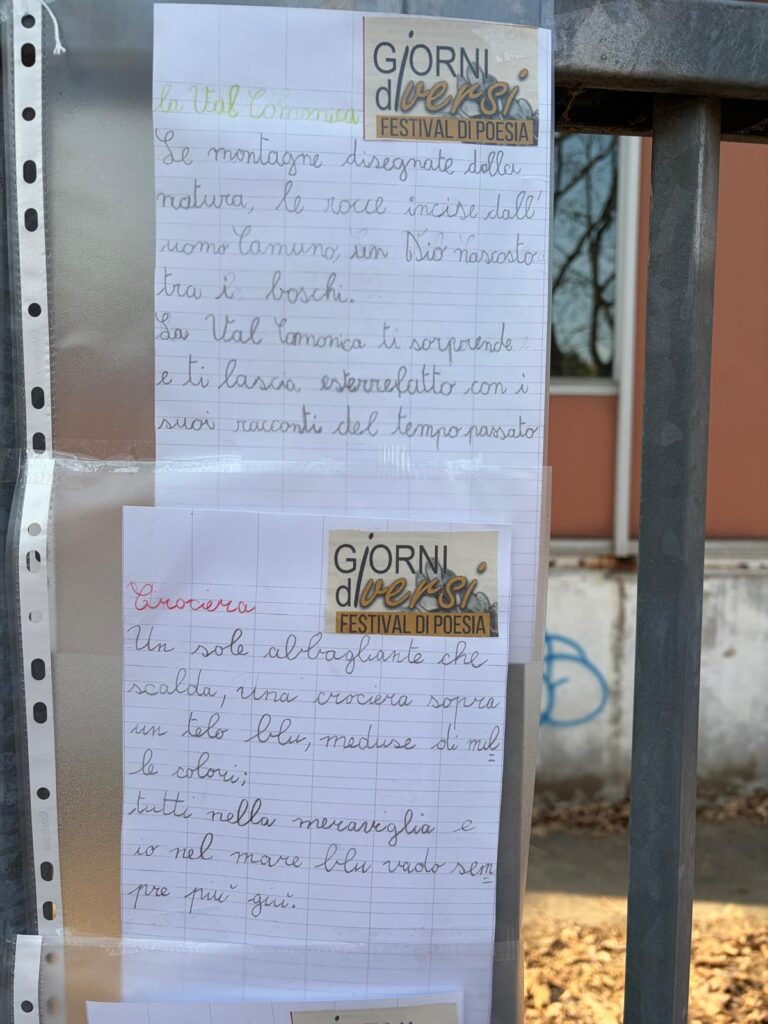 GiORNI
diversi
FESTIVAL DI POESIA
la Val Camonica
Le montagne disegnate dalla
natura, le rocce incise dall'
uomo Camuno, un Dio nascosto
tra i boschi.
La Val Camonica ti sorprende
e ti lascia esterrefatto con i
suoi racconti del tempo passato
GiORNI
diversi
FESTIVAL DI POESIA
Crociera
Un sole abbagliante che
scalda, una crociera sopra
un telo blu, meduse di mil
le colori;
tutti nella meraviglia e
io nel mare blu vado sem
pre più giù.